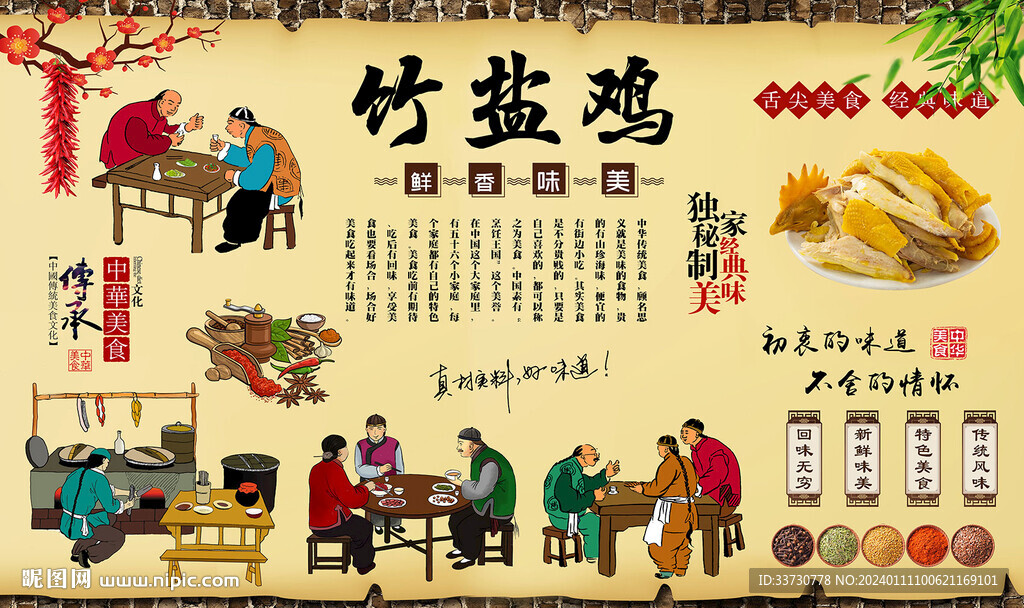 竹盐鸡
鲜香味美
舌尖美食 经典味道
独家秘制经典美味
中华传统美食，顾名思
义就是美味的食物，贵
的有山珍海味，便宜的
有街边小吃。其实美食
是不分贵贱的，只要是
自己喜欢的，都可以称
之为美食。中国素有“
烹饪王国”这个美誉。
在中国这个大家庭里，
有五十六个小家庭，每
个家庭都有自己的特色
美食。美食吃前有期待
、吃后有回味，享受美
食也要看场合，场合好
美食吃起来才有味道。
真材实料，好味道！
中華美食
文化
傳承
【中國傳統美食文化】
中華美食
初衷的味道
中华美食
不舍的情怀
传统风味
特色美食
新鲜味美
回味无穷
昵图网 www.nipic.com
ID:33730778 NO:20240111100621169101